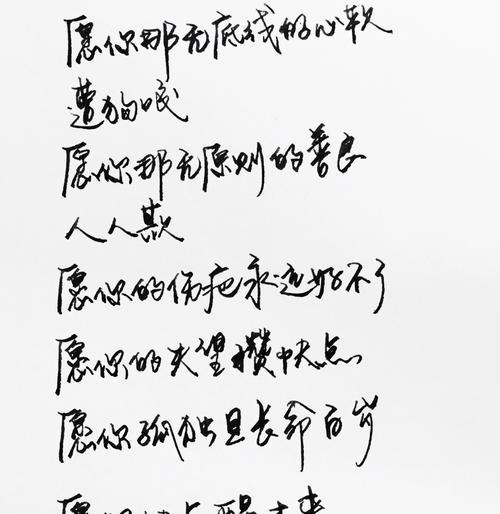 愿你那无底线的心软
遭狗咬
愿你那无原则的善良
人人欺
愿你的伤疤永远好不了
愿你的失望攒快点
愿你孤独且长命百岁
愿你